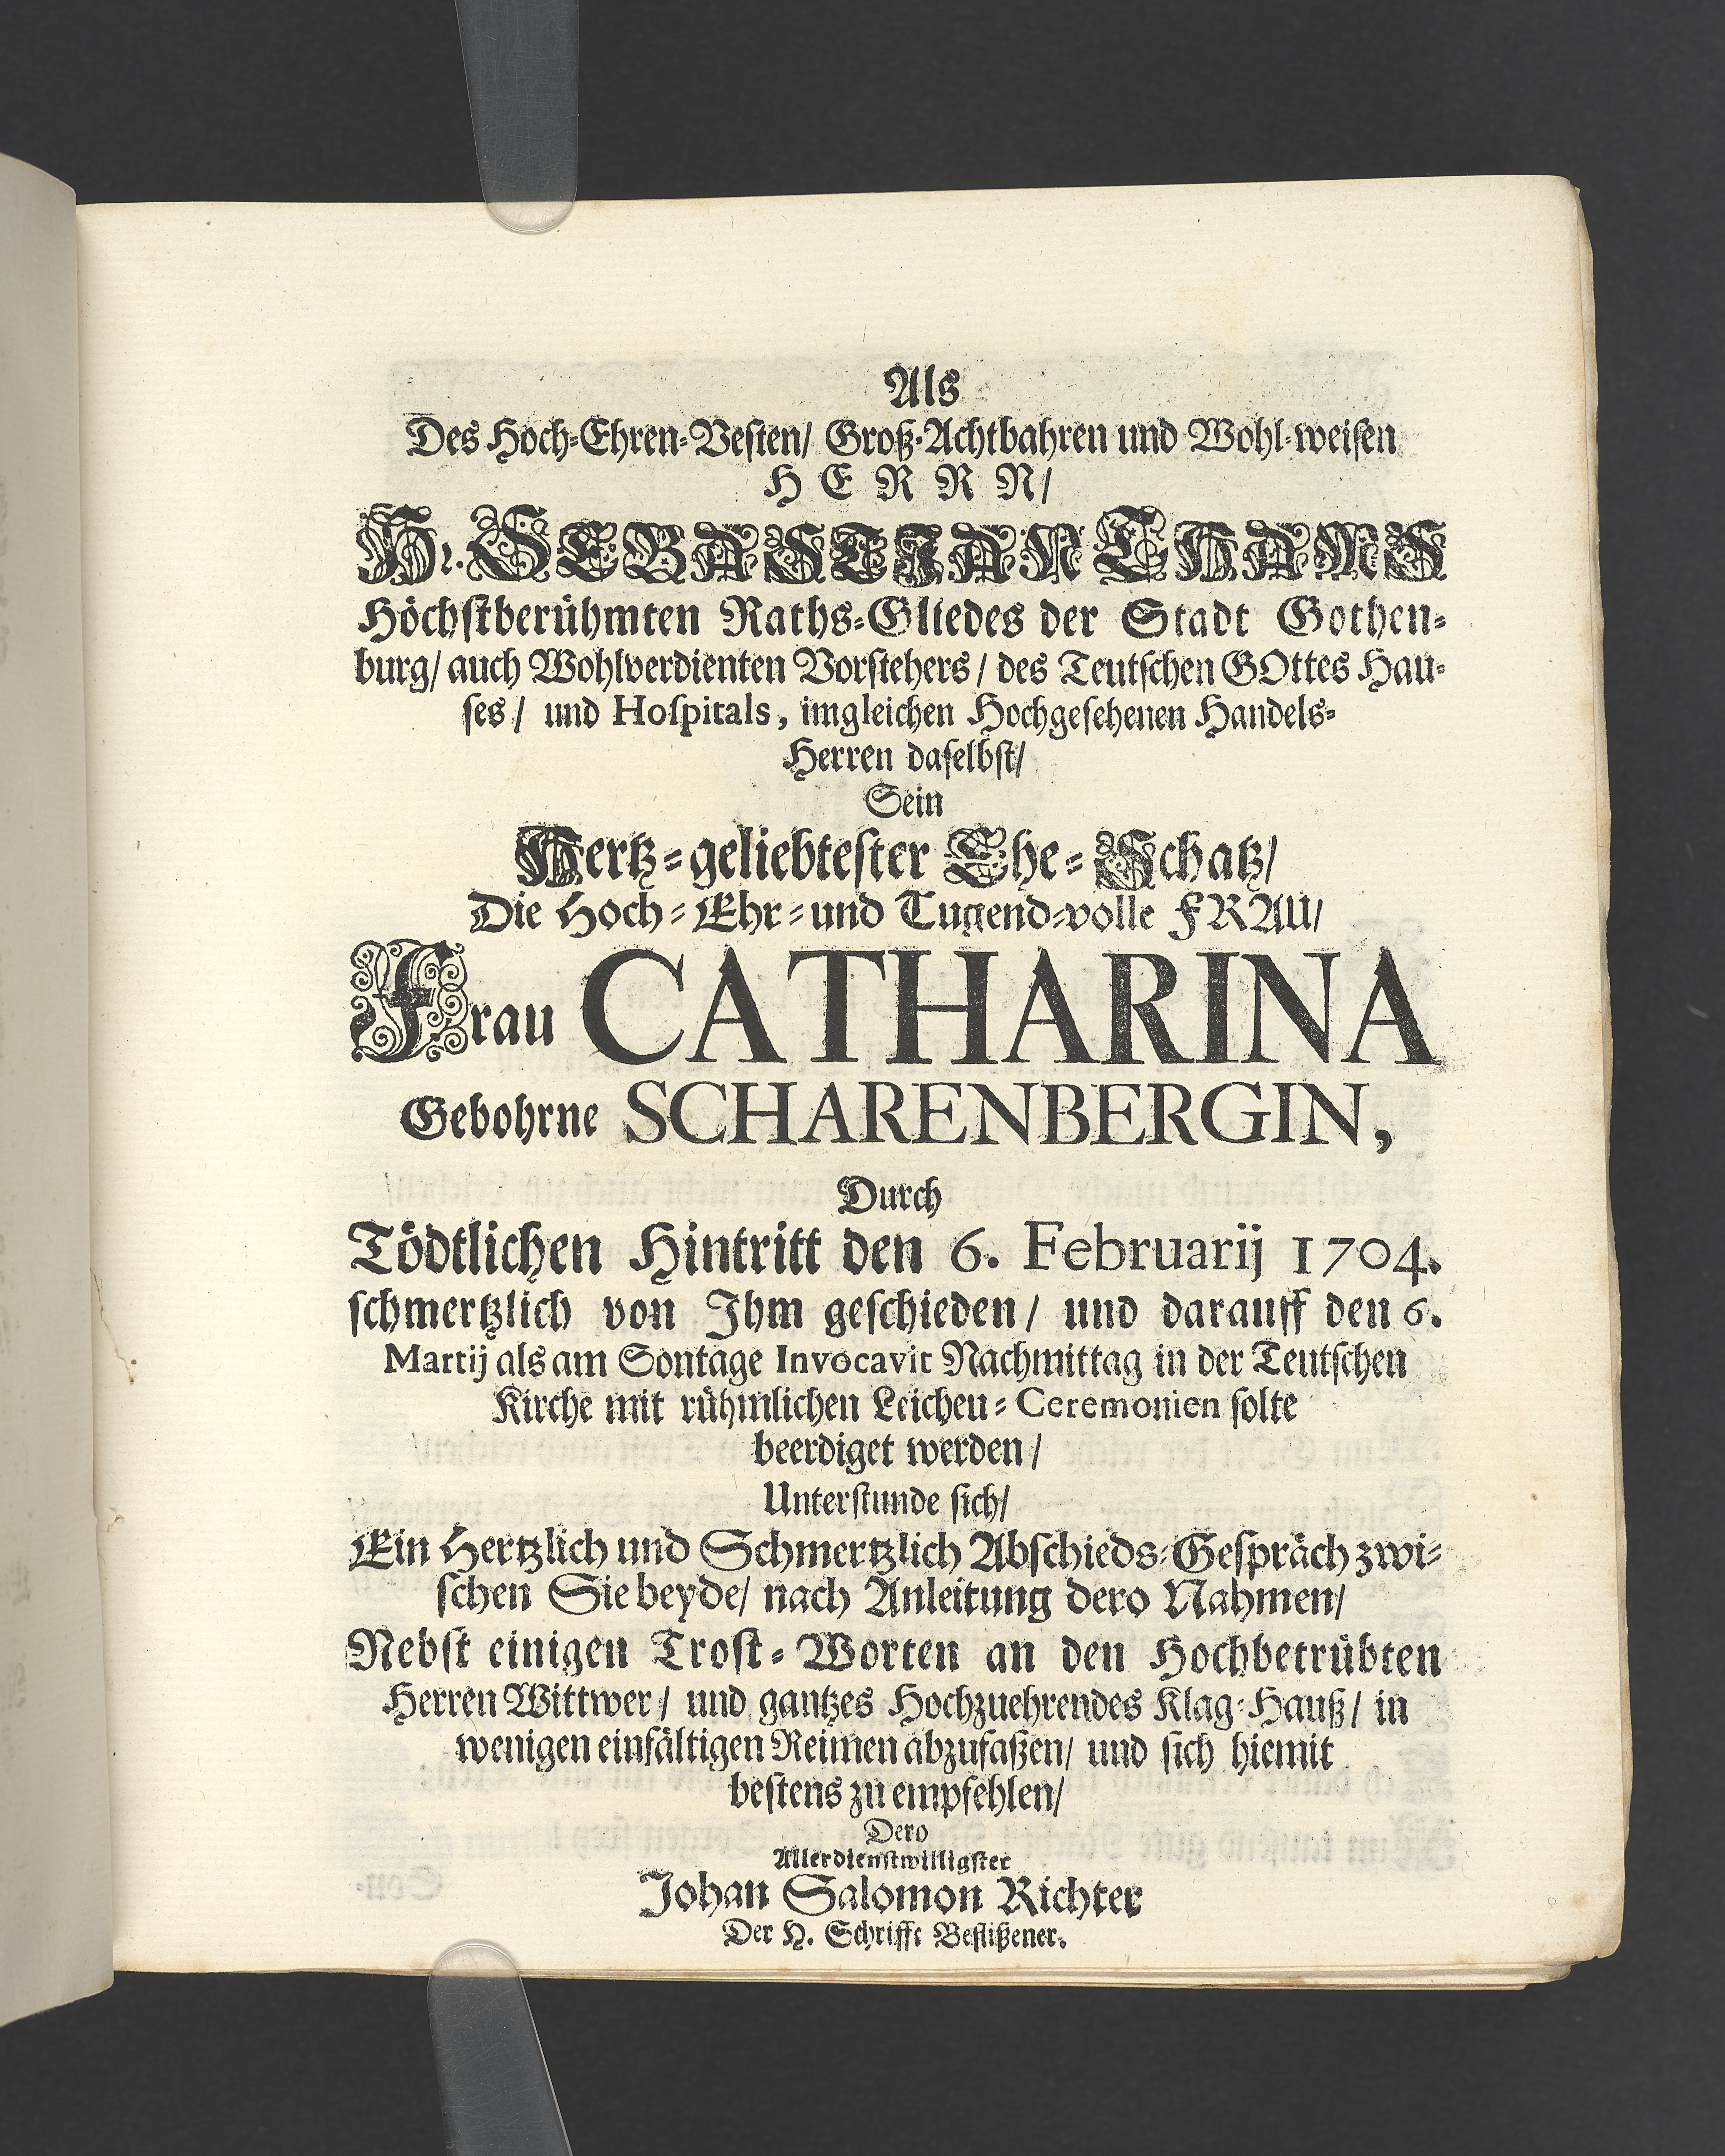 Als
Des Hoch-Ehren-Vesten/ Groß-Achtbahren und Wohl-weisen
HERRN/
Hr. SEBASTIAN THAMS
Höchstberühmten Raths-Gliedes der Stadt Gothen-
burg/ auch Wohlverdienten Vorstehers/ des Teutschen GOttes Hau-
ses/ und Hospitals, imgleichen Hochgesehenen Handels-
Herren daselbst/
Sein
Hertz-geliebtester Ehe-Schatz/
Die Hoch-Ehr-und Tugend-volle FRAU/
Frau CATHARINA
Gebohrne SCHARENBERGIN,
Durch
Tödtlichen Hintritt den 6. Februarij 1704.
schmertzlich von Ihm geschieden/ und darauff den 6.
Martij als am Sontage Invocavit Nachmittag in der Teutschen
Kirche mit rühmlichen Leichen-Ceremonien solte
beerdiget werden/
Unterstunde sich/
Ein Hertzlich und Schmertzlich Abschieds-Gespräch zwi-
schen Sie beyde/ nach Anleitung dero Nahmen/
Nebst einigen Trost-Worten an den Hochbetrübten
Herren Wittwer/ und gantzes Hochzuehrendes Klag-Hauß/ in
wenigen einfältigen Reimen abzufaßen/ und sich hiemit
bestens zu empfehlen/
Dero
Allerdienstwilligster
Johan Salomon Richter
Der H. Schrifft Beflißener.